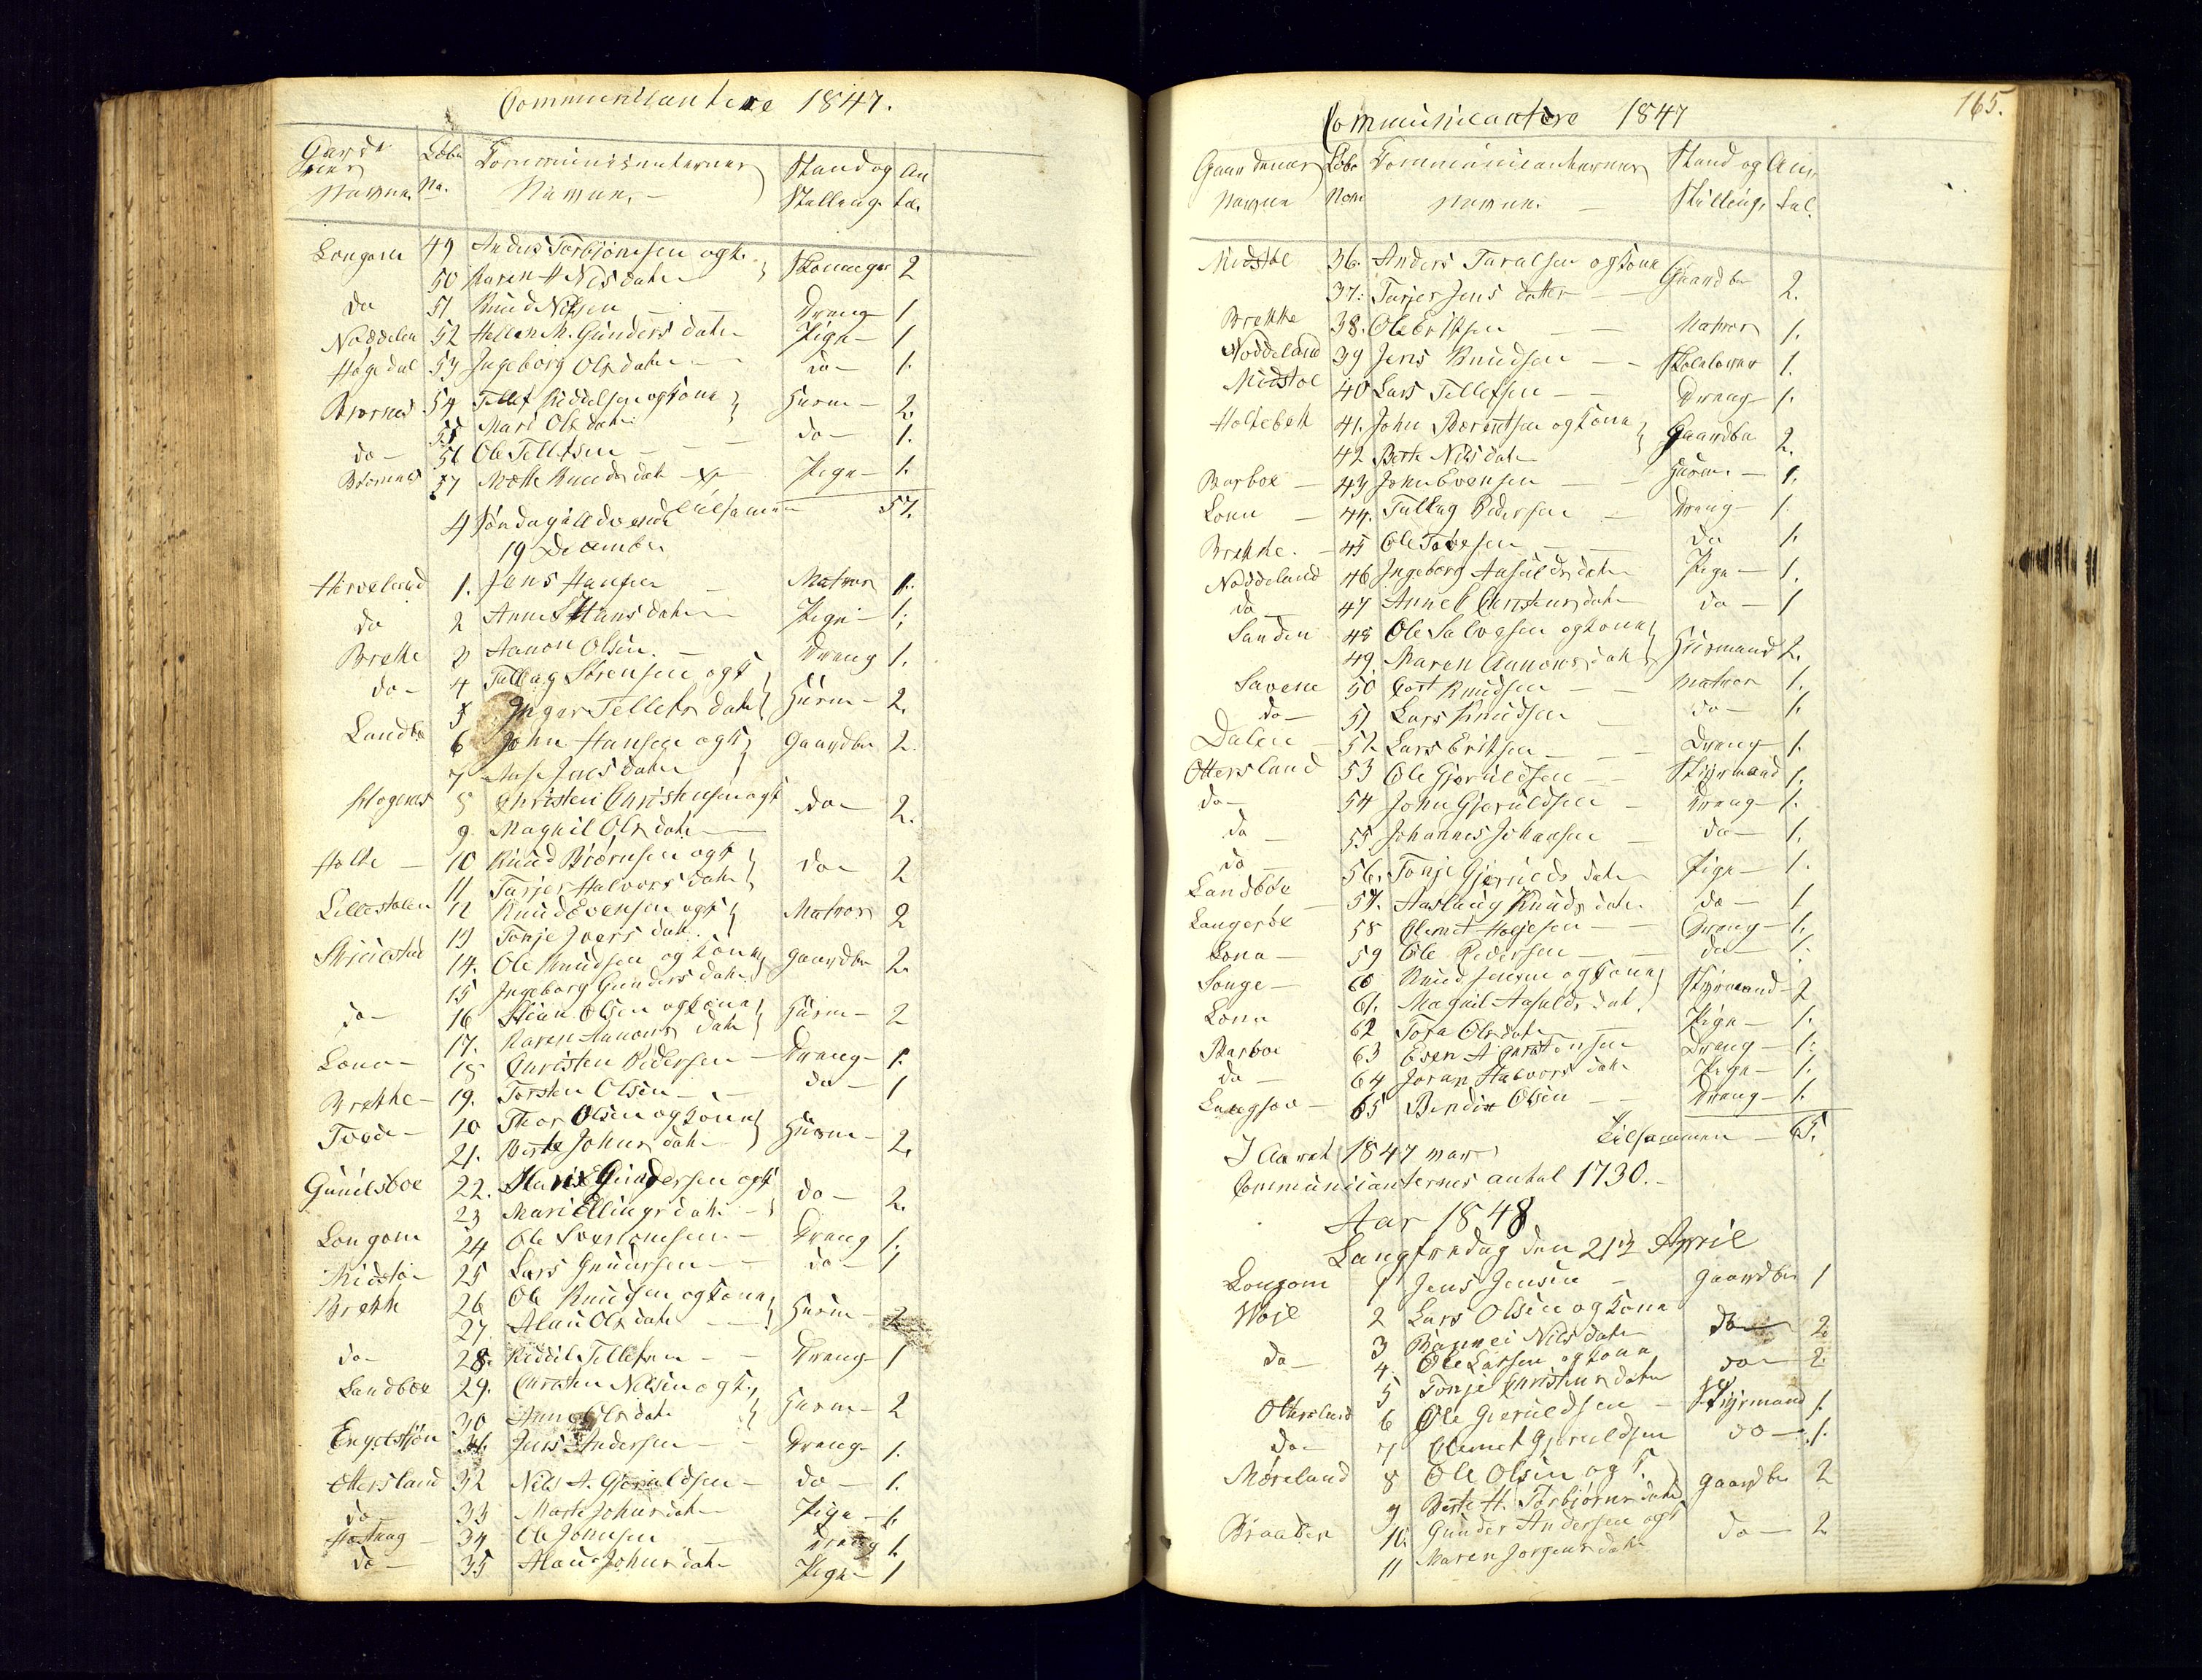 Communicantere 1847.
Gaardenes Løbe Communicanternes Stand og An
Navne. No. Navne. Stelling tal.
Longom 49 Anders Torbjörnsen og k.
50 Karen H Nilsdater 2
do 51 Knud Nilsen Dreng 1
Noddelan 52 Hellen M. Gunders dater Pige 1
Hagedal 53 Ingeborg Olsdater do 1.
54 Tellef Kiddelsen og Kone Huusm 2.
55 Mari Olsdater
do 56 Ole Tellefsen do 1.
57 Mette Knudsdater Pige 1.
Tilsammen 57.
4 Søndag i Advendt
19 December
1. Jens Hansen Matros 1.
do 2 Anne S Hansdater Pige 1.
Brekke 3 Aanon Olsen. Dreng 1.
do 4 Tallag Sörensen og k
5 Inger Tellefsdater Huusm 2.
Landbø 6 John Hansen og k Gaardbr 2.
7 Aase Jensdater
8 Christen Christensen og k do 2.
9. Magnil Olsdater
Holte 10 Knud Biörnsen og k do 2
11 Tarjer Halvorsdater
Lillestølen 12 Knud Evensen og k Matros 2
13 Tonje Iversdat.
14. Ole Knudsen og Kone Gaardbr 2.
15 Ingeborg Gundersdater
do 16 Stian Olsen og Kone Huusm 2
17. Karen Aanonsdater
Lona 18 Christen Pedersen Dreng 1.
Brekke 19. Torsten Olsen do 1
20 Thor Olsen og Kone Huusm 2.
21. Berte Johnsdater
Gunilsboe 22. Hans Gundersen og k do 2.
23 Mari Ellingsdater
Longom 24 Ole Dreng 1.
Midstø 25 Lars Gundersen do 1
Brekk 26 Ole Knudsen og Kone Huusm 2
27. Alau Olsdater
do 28. Kiddil Tellefsen Dreng 1
Landboe 29. Christen Nilsen og k Huusm 2
30 Anne Olsdater
31. Jens Andersen Dreng 1.
Ottersland 32 Nils A. Gjeruldsen do 1.
do 33 Marte Johnsdater Pige 1.
34 Ole Johnsen Dreng 1.
do 35 Alau Johnsdater Pige 1
165.
Communicantere 1847
Gaardenes Løbe Communicanternes Stand og An
Navne Nom Navne. Stilling tal.
Midstøl 36. Anders Taralsen og Kone Gaardbr 2.
37. Tarjer Jensdatter
Brekke 38. Ole Eriksen Matros 1.
Noddeland 39 Jens Knudsen Skolelærer 1.
Midstøl 40 Lars Tellefsen Dreng 1.
Holtebek 41. John Berentsen og Kone Gaardbr 2.
42 Berte Nilsdater
Barboe 43 John Evensen Huusm. 1.
Lona 44. Tallag Pedersen Dreng 1
Brekke. 45 Ole Tovesen do 1.
Noddeland 46 Ingeborg Aasuldsdater Pige 1.
do 47 Anne C Christensdater do 1
Sanden 48 Ole Salvesen og Kone Huusmand 2.
49. Maren Aanonsdater
50 Knudsen Matros 1.
do 51 Lars Knudsen do 1.
Dalen 52. Lars Eriksen Dreng 1.
Ottersland 53 Ole Gjeruldsen Styrmand 1.
do 54 John Gjeruldsen Dreng 1.
do 55 Johannes Johansen do 1.
do 56. Tonje Gjeruldsdater Pige 1.
Landbøe 57. Aaslaug Knudsdater do 1
58 Clemet Dreng 1.
Lona 59 Ole Pedersen do 1.
Songe 60 Knud Jensen og Kone Styrmand 2
61. Magnil Aasuldsdat.
Lona 62 Tora Olsdater Pige 1.
Barboe 63 Even A Christensen Dreng 1.
do 64 Joran Halvorsdater Pige 1.
65 Bendix Olsen Dreng 1.
Tilsammen 65.
I Aaret 1847 var
Communicanternes antal 1730.
Aar 1848
Langfredag den 21de April
Longom 1 Jens Jensen Gaardbr 1
2 Lars Olsen og Kone do 2.
3 Nilsdater
do 4. Ole Larsen og Kone do 2.
5 Tonje Christensdater
Ottersland 6 Ole Gjeruldsen Styrmand 1.
do 7 Clemet Gjeruldsen do 1.
Moreland 8 Ole Olsen og k. Gaardbr 2
9 Berte H. Torbjörnsdater
Braaten 10. Gunder Andersen og k do 2
11 Maren Jorgensdater